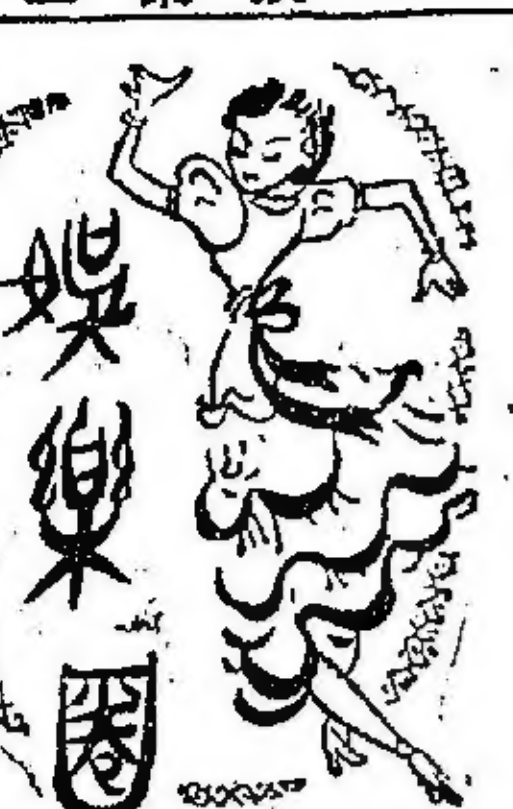 娛樂圈